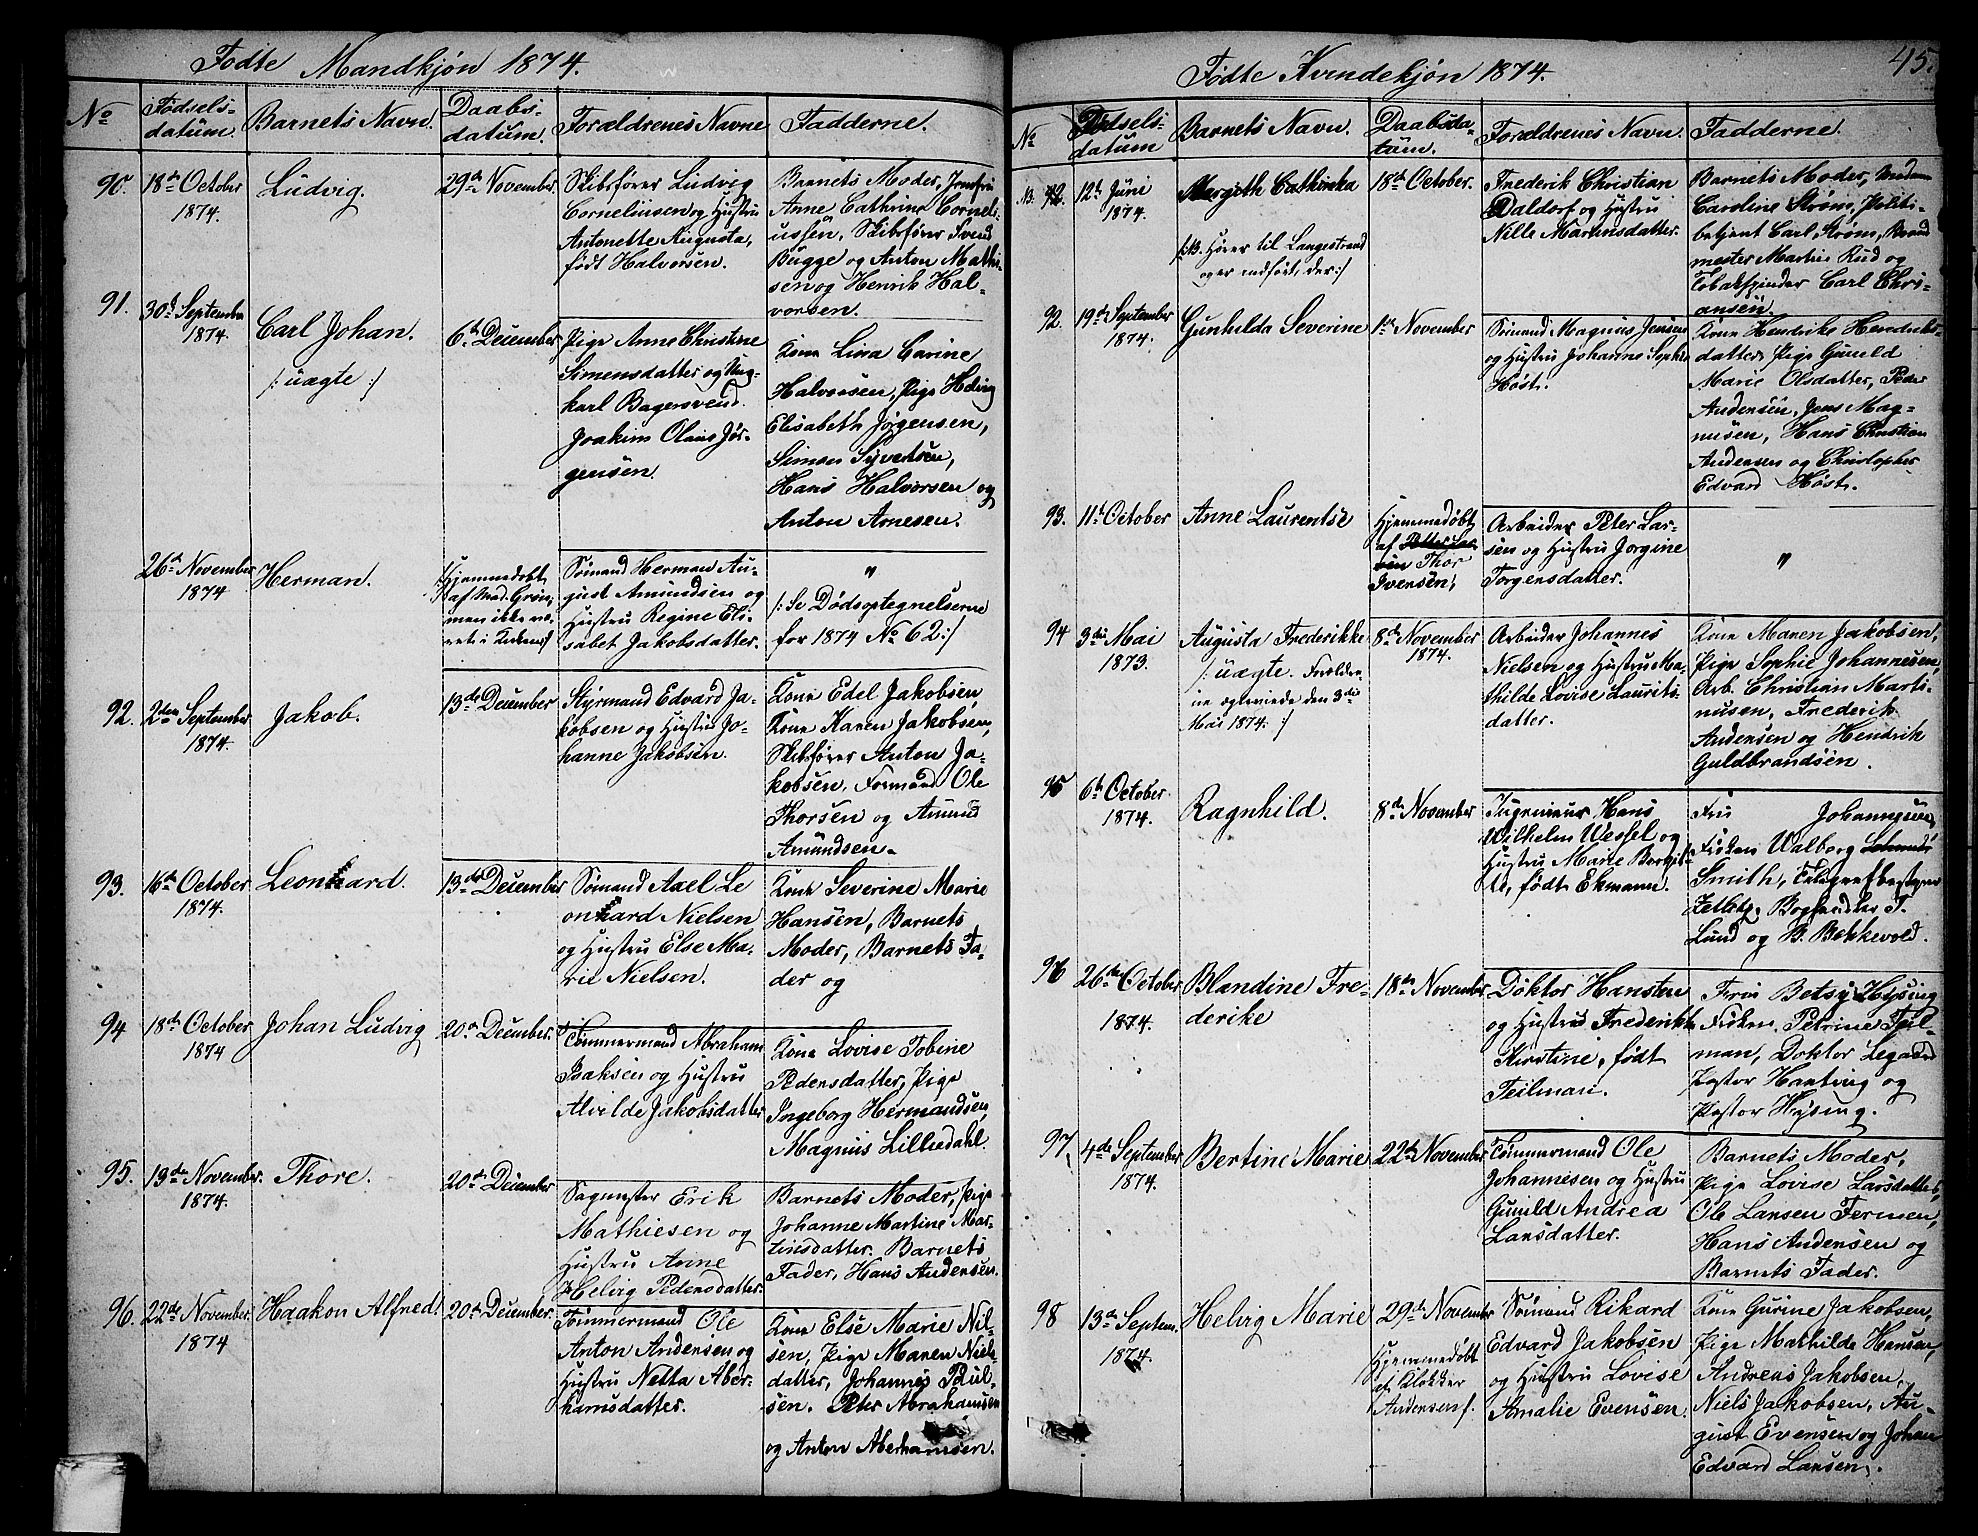 Fødte Mandkjøn 1874.
No
Fødsels-
datum.
Barnets Navn.
Daabs-
datum.
Forældrenes Navne
Fadderne.
90.
18de October
1874.
Ludvig.
29de November.
Skibsfører Ludvig
Corneliusen og Hustru
Antonette Augusta,
født Halvorsen.
Barnets Moder, Jomfru
Anne Cathrine Corneli-
ussen, Skibsfører Svend
Bugge og Anton Mathi-
sen og Henrik Hal-
vorsen.
91.
30te September
1874.
Carl Johan.
/: uægte :/
6te December
Pige Anne Christine
Simensdatter og Ung-
karl Bagersvend
Joakim Olaus Jør-
gensen.
Kone Lina Carine
Halvorsen, Pige Hedvig
Elisabeth Jørgensen,
Simon Syvertsen,
Hans Halvorsen og
Anton Arnesen.
26de November
1874
Herman.
/:Hjemmedøbt
af Mad. Grøn,
men ikke væ-
ret i Kirken:/
Sømand Herman Au-
gust Amundsen og
Hustru Regine Eli-
sabet Jakobsdatter.
"
/: Se Dødsoptegnelserne
for 1874 No 62 :/
92.
2den September
1874.
Jakob.
13de December
Styrmand Edvard Ja-
kobsen og Hustru Jo-
hanne Jakobsen.
Kone Edel Jakobsen,
Kone Karen Jakobsen,
Skibsfører Anton Ja-
kobsen, Formand Ole
Thorsen og Amund
Amundsen.
93.
16de October
1874.
Leonhard.
13de December
Sømand Axel Le
onhard Nielsen
og Hustru Else Ma-
rie Nielsen.
Kone Severine Marie
Hansen, Barnets
Moder, Barnets Fa-
der og
94
18de October
1874
Johan Ludvig
20de December.
Tømmermand Abraham
Isaksen og Hustru
Alvilde Jakobsdatter
Kone Lovise Tobine
Pedersdatter, Pige
Ingeborg Hermandsen,
Magnus Lilliedahl.
95.
13de November.
1874.
Thore.
20de December
Sagmester Erik
Mathiesen og
Hustru Anne
Helvig Pedersdatter.
Barnets Moder, Pige
Johanne Martine Mar-
tinsdatter. Barnets
Fader, Hans Andersen.
96.
22de November.
1874
Haakon Alfred.
20de December.
Tømmermand Ole
Anton Andersen og
Hustru Netta Aber-
hamsdatter.
Kone Else Marie Nil-
sen, Pige Maren Niels-
datter, Johannes Paul-
sen. Peter Abrahamsen
og Anton Aberhamsen.
Fødte Kvindekjøn 1874.
45.
No
Fødsels-
datum
Barnets Navn.
Daabsda-
tum.
Forældrenes Navn.
Fadderne.
12te Juni
1874.
Margith Cathinka
/:NB. Hører til Langestrand
og er indført, der:/
18de October.
Frederik Christian
Daldorf og Hustru
Nille Martinsdatter.
Barnets Moder, Madam
Caroline Strøm, Politi-
betjent Carl Strøm, Brand
mester Martin Rud og
Tobakspinder Carl Chris-
ansen.
92.
19de September
1874.
Gunhilda Severine
1ste November
Sømand Magnus Jensen
og Hustru Johanne Sophie
Høst.
Kone Hendrike Hendriks-
datter, Pige Gunild
Marie Olsdatter, Peder
Andersen, Jens Mag-
nusen, Hans Christian
Andersen og Christopher
Edvard Høst.
93.
11te October
Anne Laurentse
Hjemmedøbt
af Petter Lar-
sen Thor
Ivensen,
Arbeider Peter Lar-
sen og Hustru Jorgine
Torgensdatter.
"
94
3die Mai
1873.
Augusta Frederikke
/: uægte. Forældre-
ne ægteviede den 3die
Mai 1874. :/
8de November
1874.
Arbeider Johannes
Nielsen og Hustru Ma-
thilde Lovise Laurits-
datter.
Kone Maren Jakobsen,
Pige Sophie Johannesen,
Arb. Christian Marti-
nusen, Frederik
Andersen og Hendrik
Guldbrandsen.
95
6te October.
1874.
Ragnhild.
8de November
Ingenieur Hans
Wilhelm Wessel og
Hustru Marie Bergit-
te, født Ekmann.
Fru Johannesen,
Frøken Walborg Schmidt
Smith, Telegrafbestyrer
Zetlitz, Boghandler T.
Lund og B. Bekkevold.
96
26de October
1874.
Blandine Fre-
derike
18de November
Doktor Hansten
og Hustru Frederikke
Kirstine, født
Teilman.
Fru Betsy Hysing
Frøken Petrine Teil-
man, Doktor Legaard
Pastor Hartvig og
Pastor Hysing.
97.
4de September
1874.
Bertine Marie
22de November
Tømmermand Ole
Johannesen og Hustru
Gunild Andrea
Larsdatter.
Barnets Moder,
Pige Lovise Larsdatter,
Ole Larsen Fermen,
Hans Andersen og
Barnets Fader.
98
13de Septem.
1874.
Helvig Marie
29de November
Hjemmedøbt
af Klokker
Andersen/.
Sømand Rikard
Edvard Jakobsen
og Hustru Lovise
Amalie Evensen.
Kone Gurine Jakobsen,
Pige Mathilde Hansen,
Andreas Jakobsen,
Niels Jakobsen, Au-
gust Evensen og Johan
Edvard Larsen.